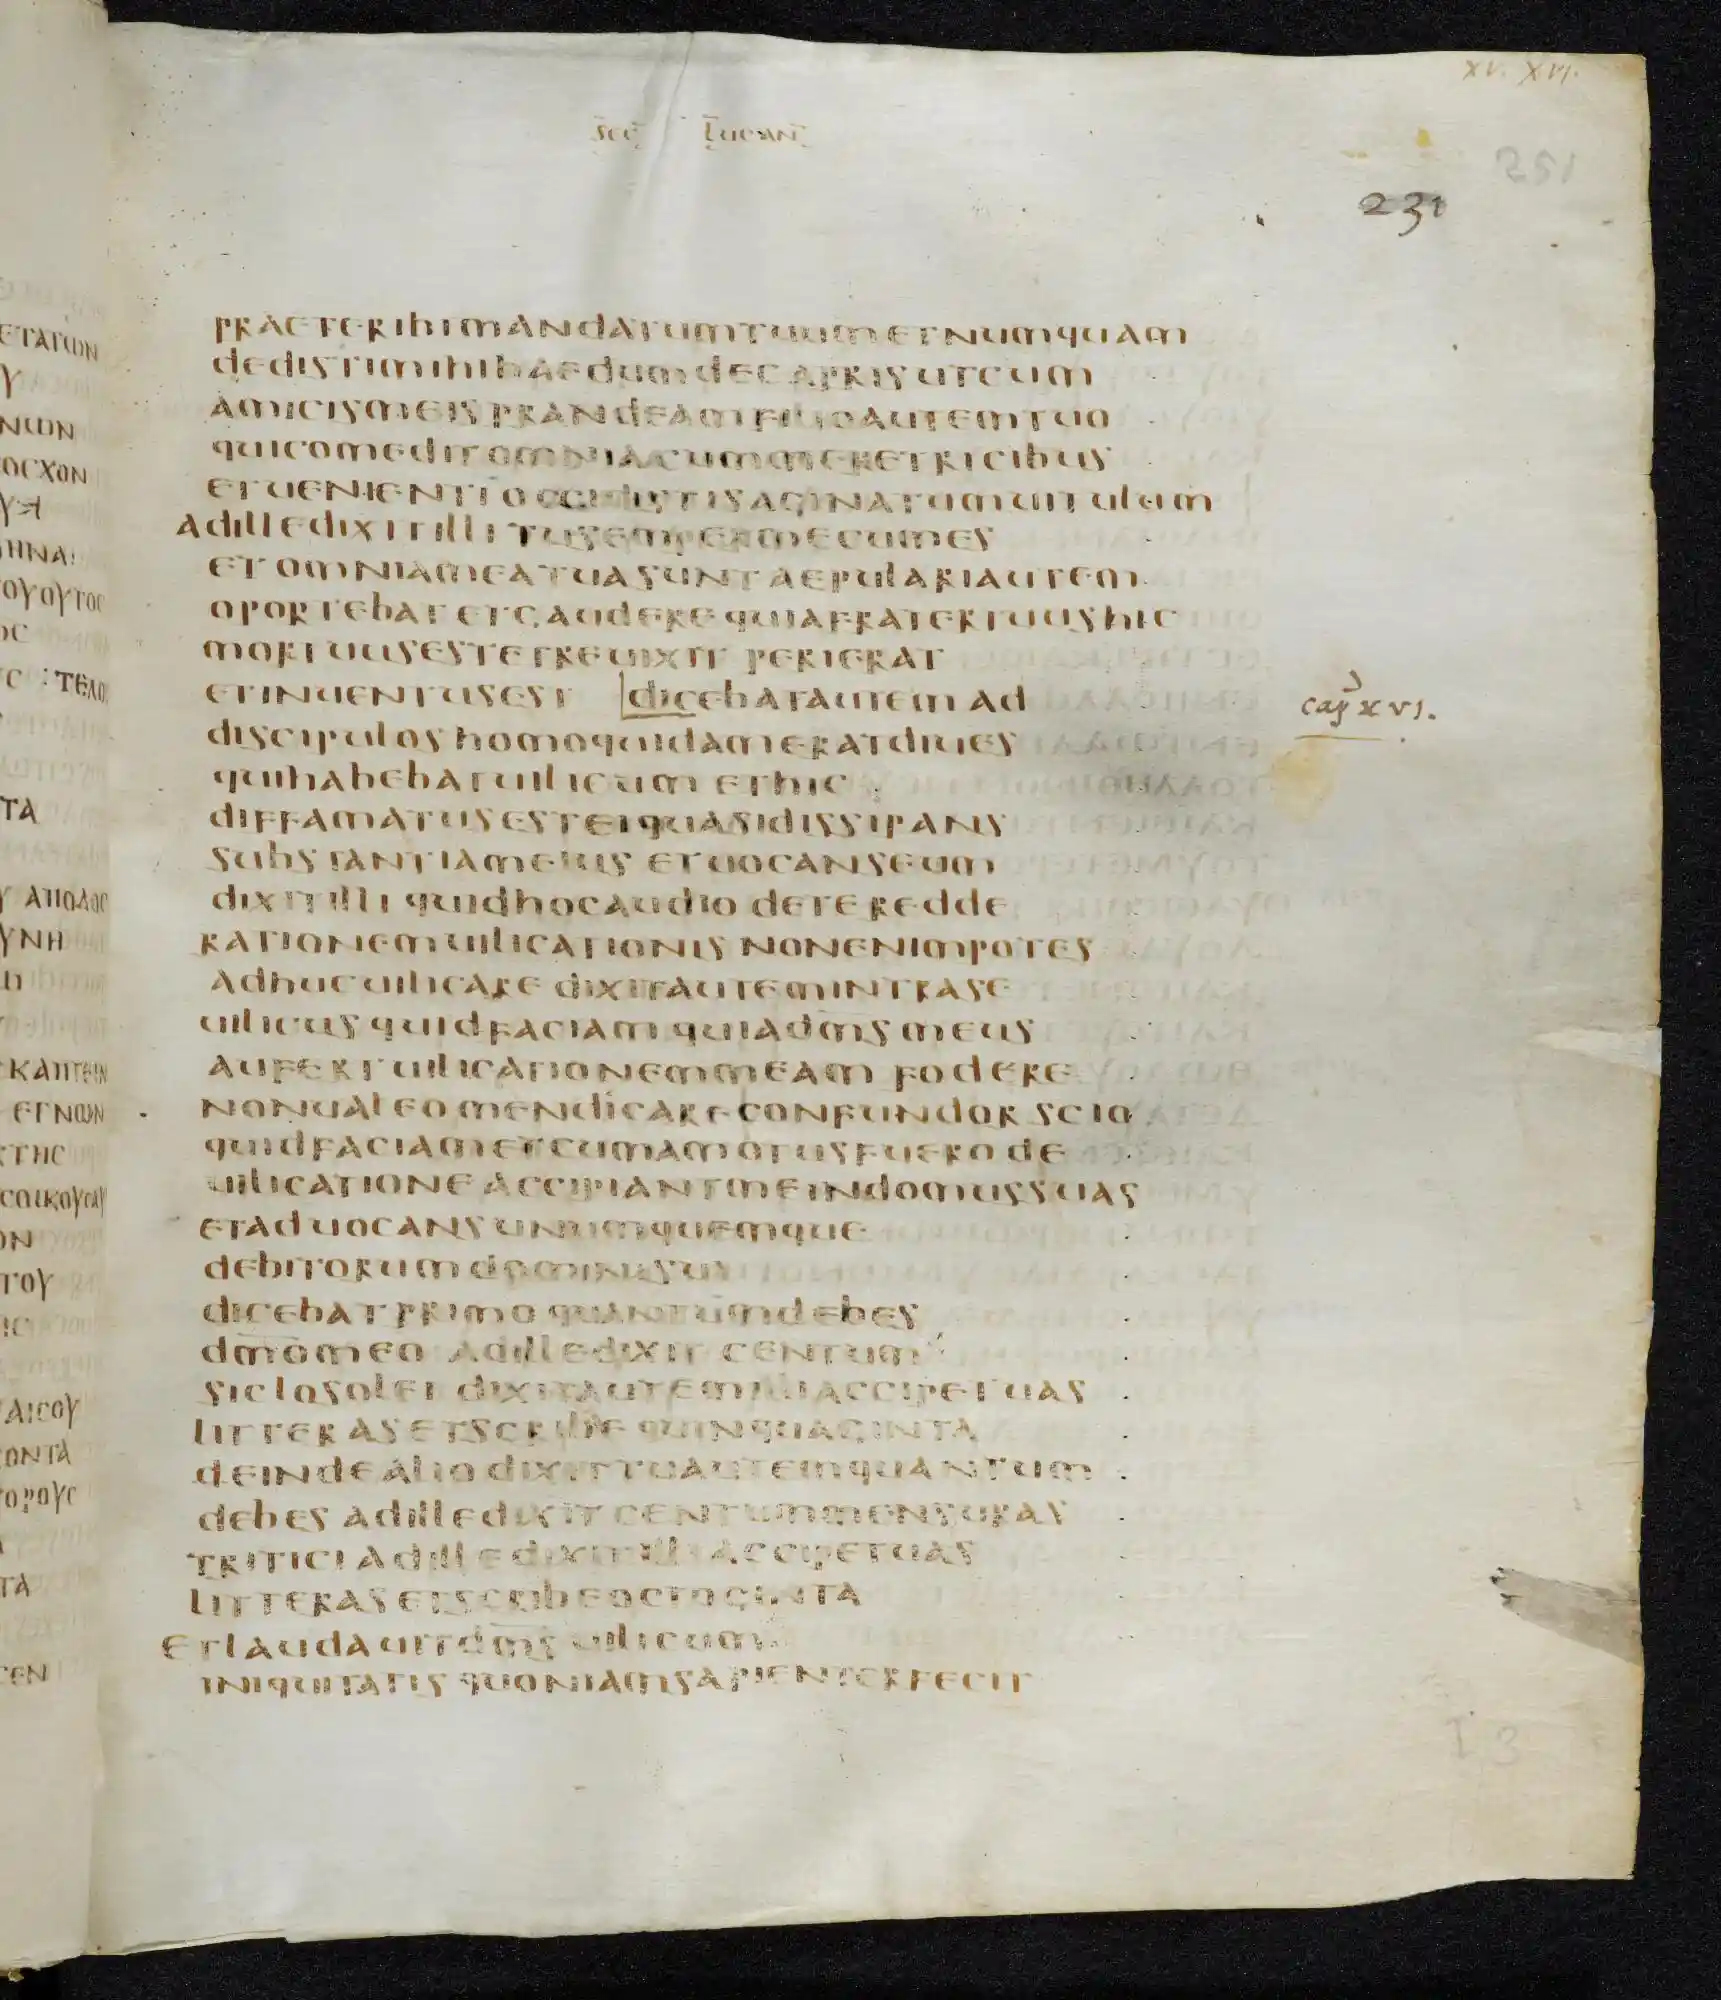 XV. XVI.
sec lucan
251
231
praeteribi mandatum tuum et numquam
dedisti mihi haedum de capris ut cum
amicis meis prandeam filio autem tuo
qui comedit omnia cum meretricibus
et uenienti occidisti saginatum uitulum
ad ille dixit illi tu semper mecum es
et omnia mea tua sunt aepulari autem
oportebat et gaudere quia frater tuus hic
mortuus est et reuixit perierat
et inuentus est dicebat autem ad
cap XVI.
discipulos homo quidam erat diues
qui habebat uilicum et hic
diffamatus est ei quasi dissipans
substantiam eius et uocans eum
dixit illi quid hoc audio de te redde
rationem uilicationis non enim potes
adhuc uilicare dixit autem intra se
uilicus quid faciam quia dms meus
aufert uilicationem meam fodere
non ualeo mendicare confundor scio
quid faciam et cum amotus fuero de
uilicatione accipiant me in domus suas
et aduocans unumquemque
debitorum domini sui
dicebat primo quantum debes
dmo meo ad ille dixit centum
siclos olei dixit autem illi accipe tuas
litteras et scribe quinquaginta
deinde alio dixit tu autem quantum
debes ad ille dixit centum mensuras
tritici ad ille dixit illi accipe tuas
litteras et scribe octoginta
et laudauit dms uilicum
iniquitatis quoniam sapienter fecit